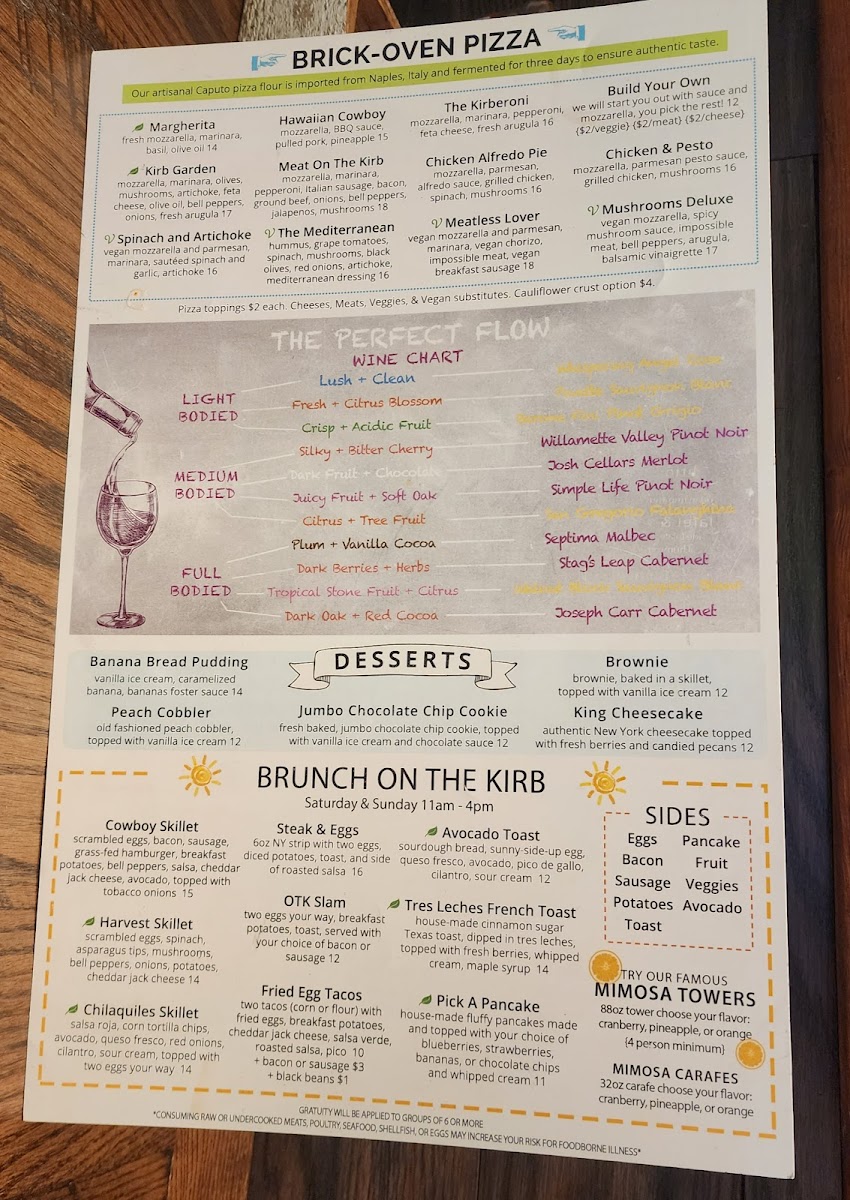 BRICK-OVEN PIZZA
Our artisanal Caputo pizza flour is imported from Naples, Italy and fermented for three days to ensure authentic taste.
Margherita
fresh mozzarella, marinara,
basil, olive oil 14
Hawaiian Cowboy
mozzarella, BBQ sauce,
pulled pork, pineapple 15
The Kirberoni
mozzarella, marinara, pepperoni,
feta cheese, fresh arugula 16
Build Your Own
we will start you out with sauce and
mozzarella, you pick the rest! 12
{$2/veggie} {$2/meat} {$2/cheese}
Kirb Garden
mozzarella, marinara, olives,
mushrooms, artichoke, feta
cheese, olive oil, bell peppers,
onions, fresh arugula 17
Meat On The Kirb
mozzarella, marinara,
pepperoni, Italian sausage, bacon,
ground beef, onions, bell peppers,
jalapenos, mushrooms 18
Chicken Alfredo Pie
mozzarella, parmesan,
alfredo sauce, grilled chicken,
spinach, mushrooms 16
Chicken & Pesto
mozzarella, parmesan pesto sauce,
grilled chicken, mushrooms 16
V Spinach and Artichoke
vegan mozzarella and parmesan,
marinara, sautéed spinach and
garlic, artichoke 16
V The Mediterranean
hummus, grape tomatoes,
spinach, mushrooms, black
olives, red onions, artichoke,
mediterranean dressing 16
V Meatless Lover
vegan mozzarella and parmesan,
marinara, vegan chorizo,
impossible meat, vegan
breakfast sausage 18
V Mushrooms Deluxe
vegan mozzarella, spicy
mushroom sauce, impossible
meat, bell peppers, arugula,
balsamic vinaigrette 17
Pizza toppings $2 each. Cheeses, Meats, Veggies, & Vegan substitutes. Cauliflower crust option $4.
THE PERFECT FLOW
WINE CHART
LIGHT
BODIED
Lush + Clean
Fresh + Citrus Blossom
Sauvignon Blanc
Crisp + Acidic Fruit
Pinot Grigio
Silky + Bitter Cherry
Willamette Valley Pinot Noir
MEDIUM
BODIED
Dark Fruit + Chocolate
Josh Cellars Merlot
Juicy Fruit + Soft Oak
Simple Life Pinot Noir
Citrus + Tree Fruit
San Gregorio Falanghina
Plum + Vanilla Cocoa
Septima Malbec
FULL
BODIED
Dark Berries + Herbs
Stag's Leap Cabernet
Tropical Stone Fruit + Citrus
Sauvignon Blanc
Dark Oak + Red Cocoa
Joseph Carr Cabernet
DESSERTS
Banana Bread Pudding
vanilla ice cream, caramelized
banana, bananas foster sauce 14
Brownie
brownie, baked in a skillet,
topped with vanilla ice cream 12
Peach Cobbler
old fashioned peach cobbler,
topped with vanilla ice cream 12
Jumbo Chocolate Chip Cookie
fresh baked, jumbo chocolate chip cookie, topped
with vanilla ice cream and chocolate sauce 12
King Cheesecake
authentic New York cheesecake topped
with fresh berries and candied pecans 12
BRUNCH ON THE KIRB
Saturday & Sunday 11am - 4pm
Cowboy Skillet
scrambled eggs, bacon, sausage,
grass-fed hamburger, breakfast
potatoes, bell peppers, salsa, cheddar
jack cheese, avocado, topped with
tobacco onions 15
Harvest Skillet
scrambled eggs, spinach,
asparagus tips, mushrooms,
bell peppers, onions, potatoes,
cheddar jack cheese 14
Chilaquiles Skillet
salsa roja, corn tortilla chips,
avocado, queso fresco, red onions,
cilantro, sour cream, topped with
two eggs your way 14
Steak & Eggs
6oz NY strip with two eggs,
diced potatoes, toast, and side
of roasted salsa 16
OTK Slam
two eggs your way, breakfast
potatoes, toast, served with
your choice of bacon or
sausage 12
Fried Egg Tacos
two tacos (corn or flour) with
fried eggs, breakfast potatoes,
cheddar jack cheese, salsa verde,
roasted salsa, pico 10
+ bacon or sausage $3
+ black beans $1
Avocado Toast
sourdough bread, sunny-side-up egg,
queso fresco, avocado, pico de gallo,
cilantro, sour cream 12
Tres Leches French Toast
house-made cinnamon sugar
Texas toast, dipped in tres leches,
topped with fresh berries, whipped
cream, maple syrup 14
Pick A Pancake
house-made fluffy pancakes made
and topped with your choice of
blueberries, strawberries,
bananas, or chocolate chips
and whipped cream 11
SIDES
Eggs Pancake
Bacon Fruit
Sausage Veggies
Potatoes Avocado
Toast
TRY OUR FAMOUS
MIMOSA TOWERS
88oz tower choose your flavor:
cranberry, pineapple, or orange
{4 person minimum}
MIMOSA CARAFES
32oz carafe choose your flavor:
cranberry, pineapple, or orange
GRATUITY WILL BE APPLIED TO GROUPS OF 6 OR MORE
*CONSUMING RAW OR UNDERCOOKED MEATS, POULTRY, SEAFOOD, SHELLFISH, OR EGGS MAY INCREASE YOUR RISK FOR FOODBORNE ILLNESS*